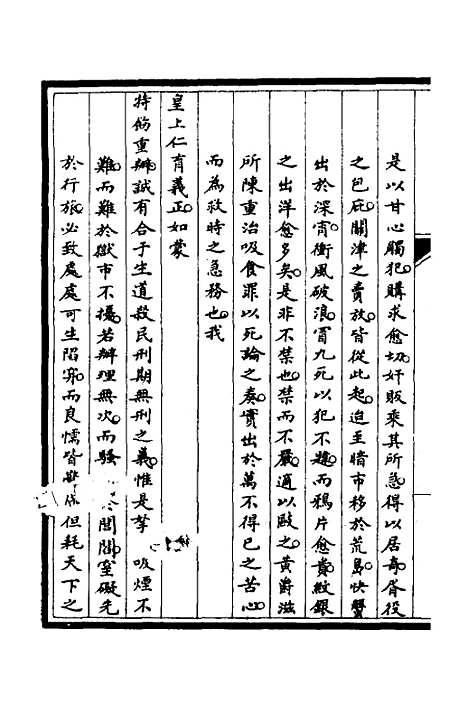 是以甘心觸犯購求愈切奸販乘其所急得以居奇胥役
之包庇關津之賣放皆從此起迨至暗市移於荒島快蟹
出於深宵衝風破浪冒九死以犯不韙而鴉片愈貴紋銀
之出洋愈多矣是非不禁也禁而不嚴適以歐之黃爵滋
所陳重治吸食罪以死論之奏實出於萬不得已之苦心
而為救時之急務也我
皇上仁育義正如蒙
特飭重辦誠有合于生道殺民刑期無刑之義惟是拏 吸煙不
難而難於獄市不擾若辦理無次而騷 閭閻窒礙先
於行旅必致處處可生陷穽而良懦皆 但耗天下之